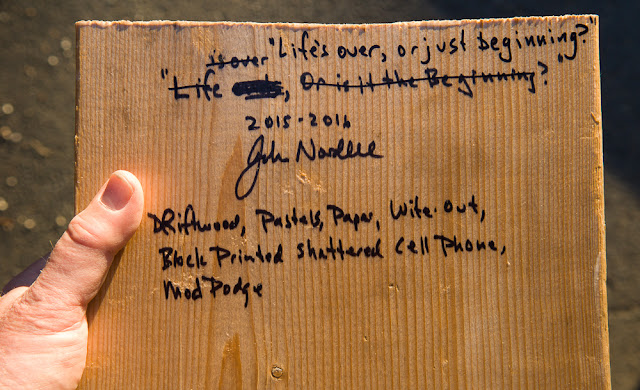 is over "Life's over, or just beginning?"
"Life , Or is it the Beginning?"
2015-2016
John Nordell
Driftwood, Pastels, Paper, Wite-Out,
Block Printed Shattered Cell Phone,
Mod Podge